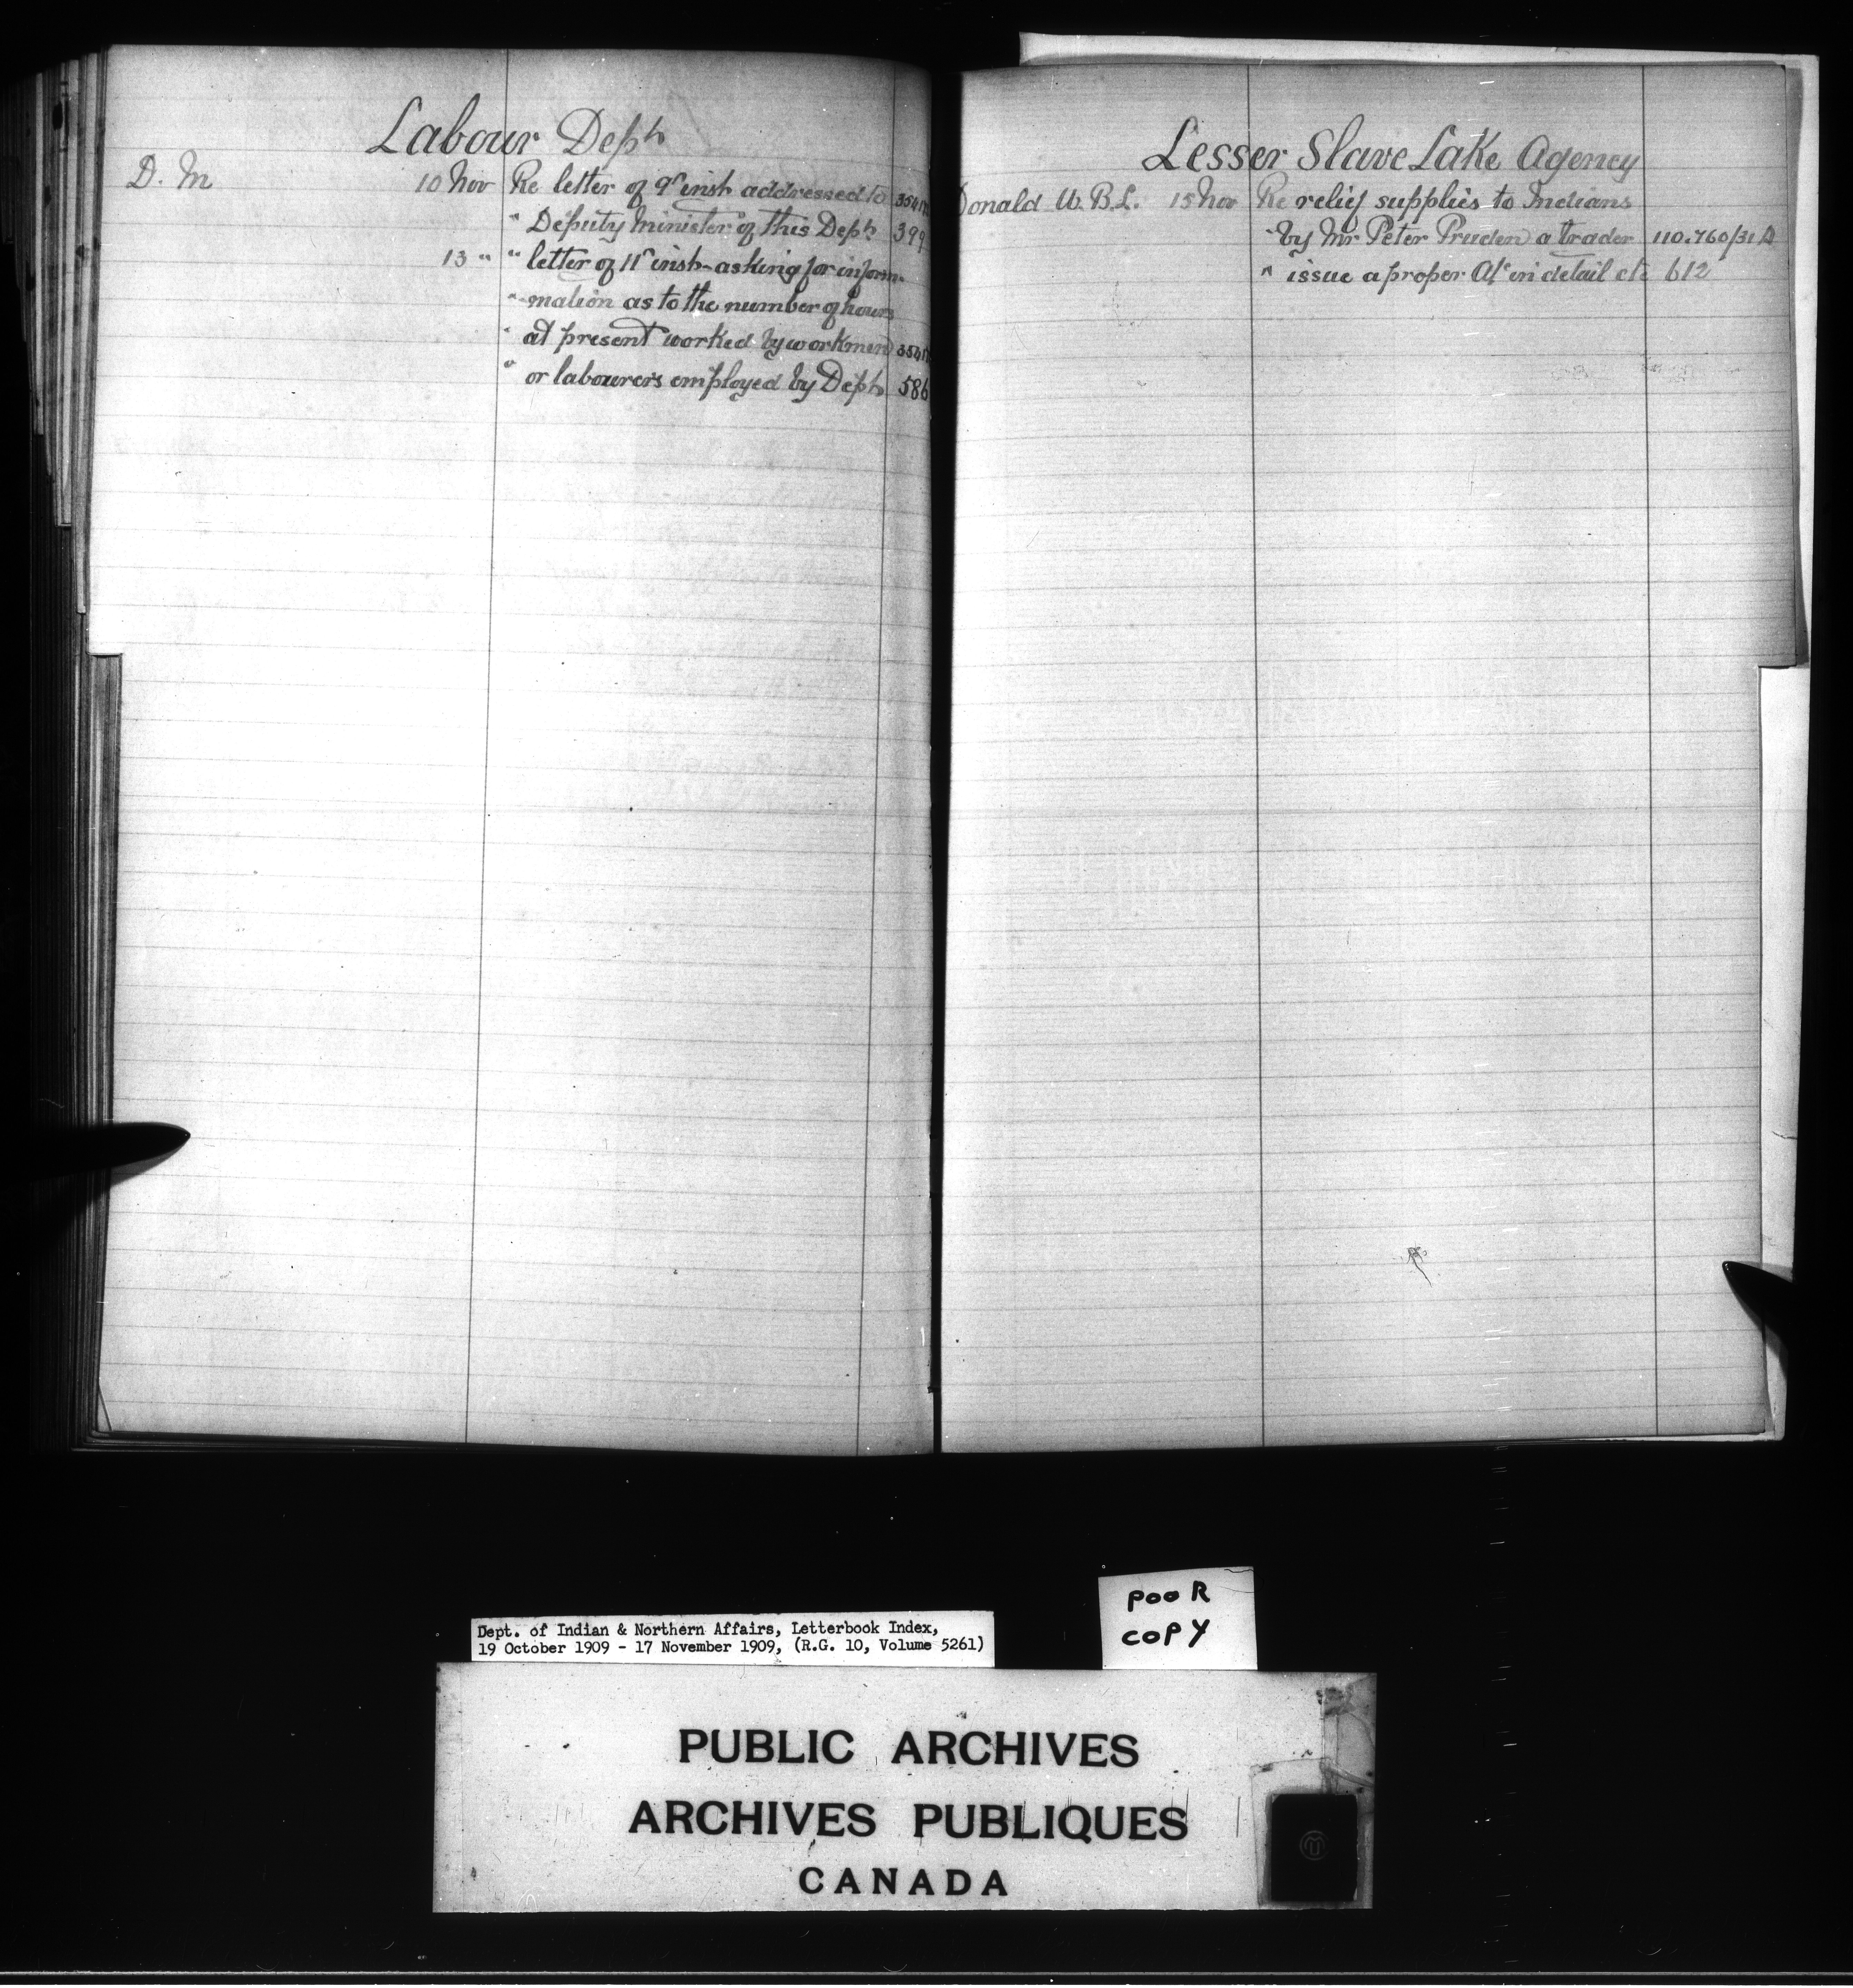 Labour Dept
D. M 10 Nov Re letter of 9th inst addressed to 35417
" Deputy Minister of this Dept 399
13 " " letter of 11th inst- asking for inform-
" -mation as to the number of hours
" at present worked by workmen 35417
" or labourers employed by Dept 586
Lesser Slave Lake Agency
Donald W. B. L. 15 Nov Re relief supplies to Indians
" by Mr Peter Pruden a trader 110.760/31
" issue a proper A/c in detail etc 612
Dept. of Indian & Northern Affairs, Letterbook Index,
19 October 1909 - 17 November 1909, (R.G. 10, Volume 5261)
POOR
COPY
PUBLIC ARCHIVES
ARCHIVES PUBLIQUES
CANADA